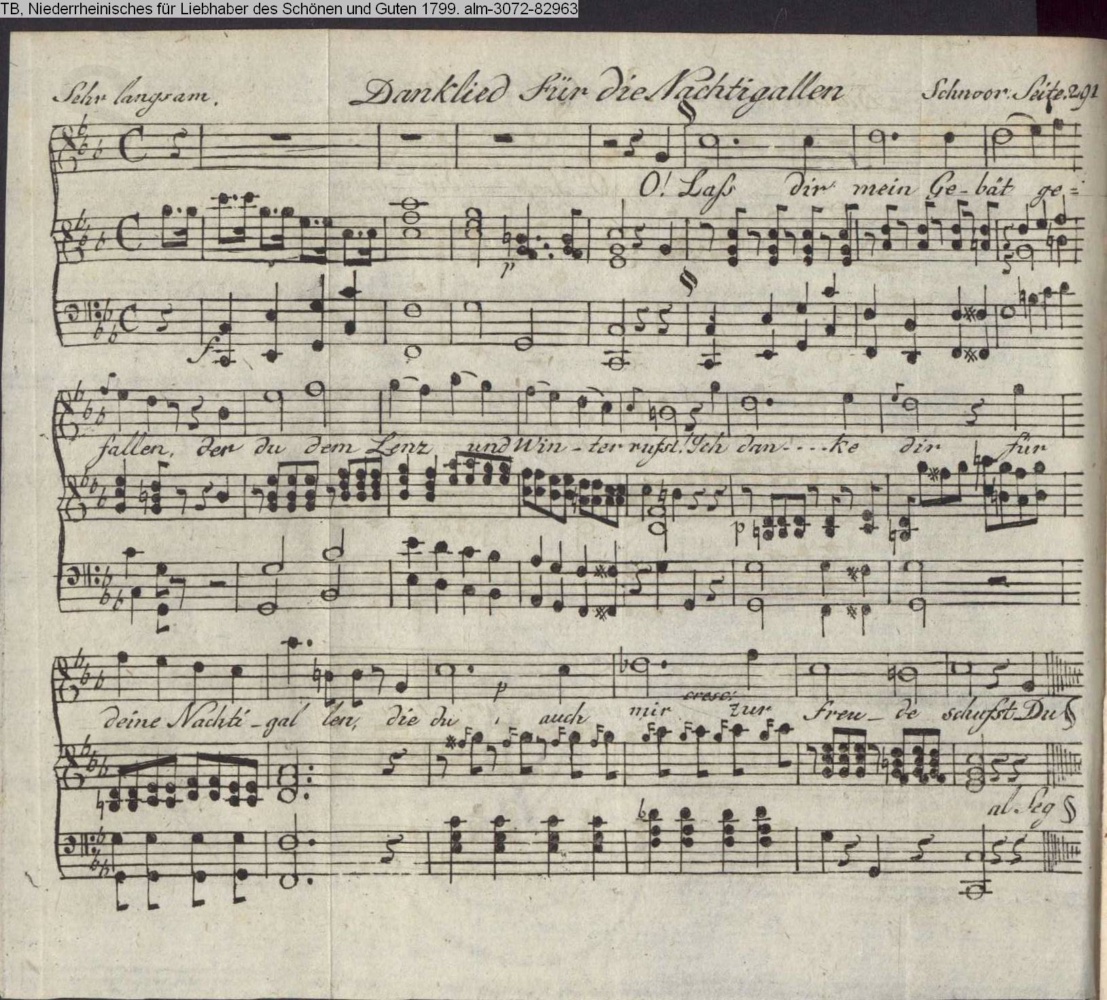 TB, Niederrheinisches für Liebhaber des Schönen und Guten 1799. alm-3072-82963
Sehr langsam. Danklied Für die Nachtigallen Schnoor. Seite. 291
O! Laſs dir mein Ge-bät ge=
p
f
fallen, der du dem Lenz und Win-ter rufst! Ich dan----ke dir für
p
p cresc:
deine Nachti-gal len, die du auch mir zur Freu-de schufst Du §
al Seg §